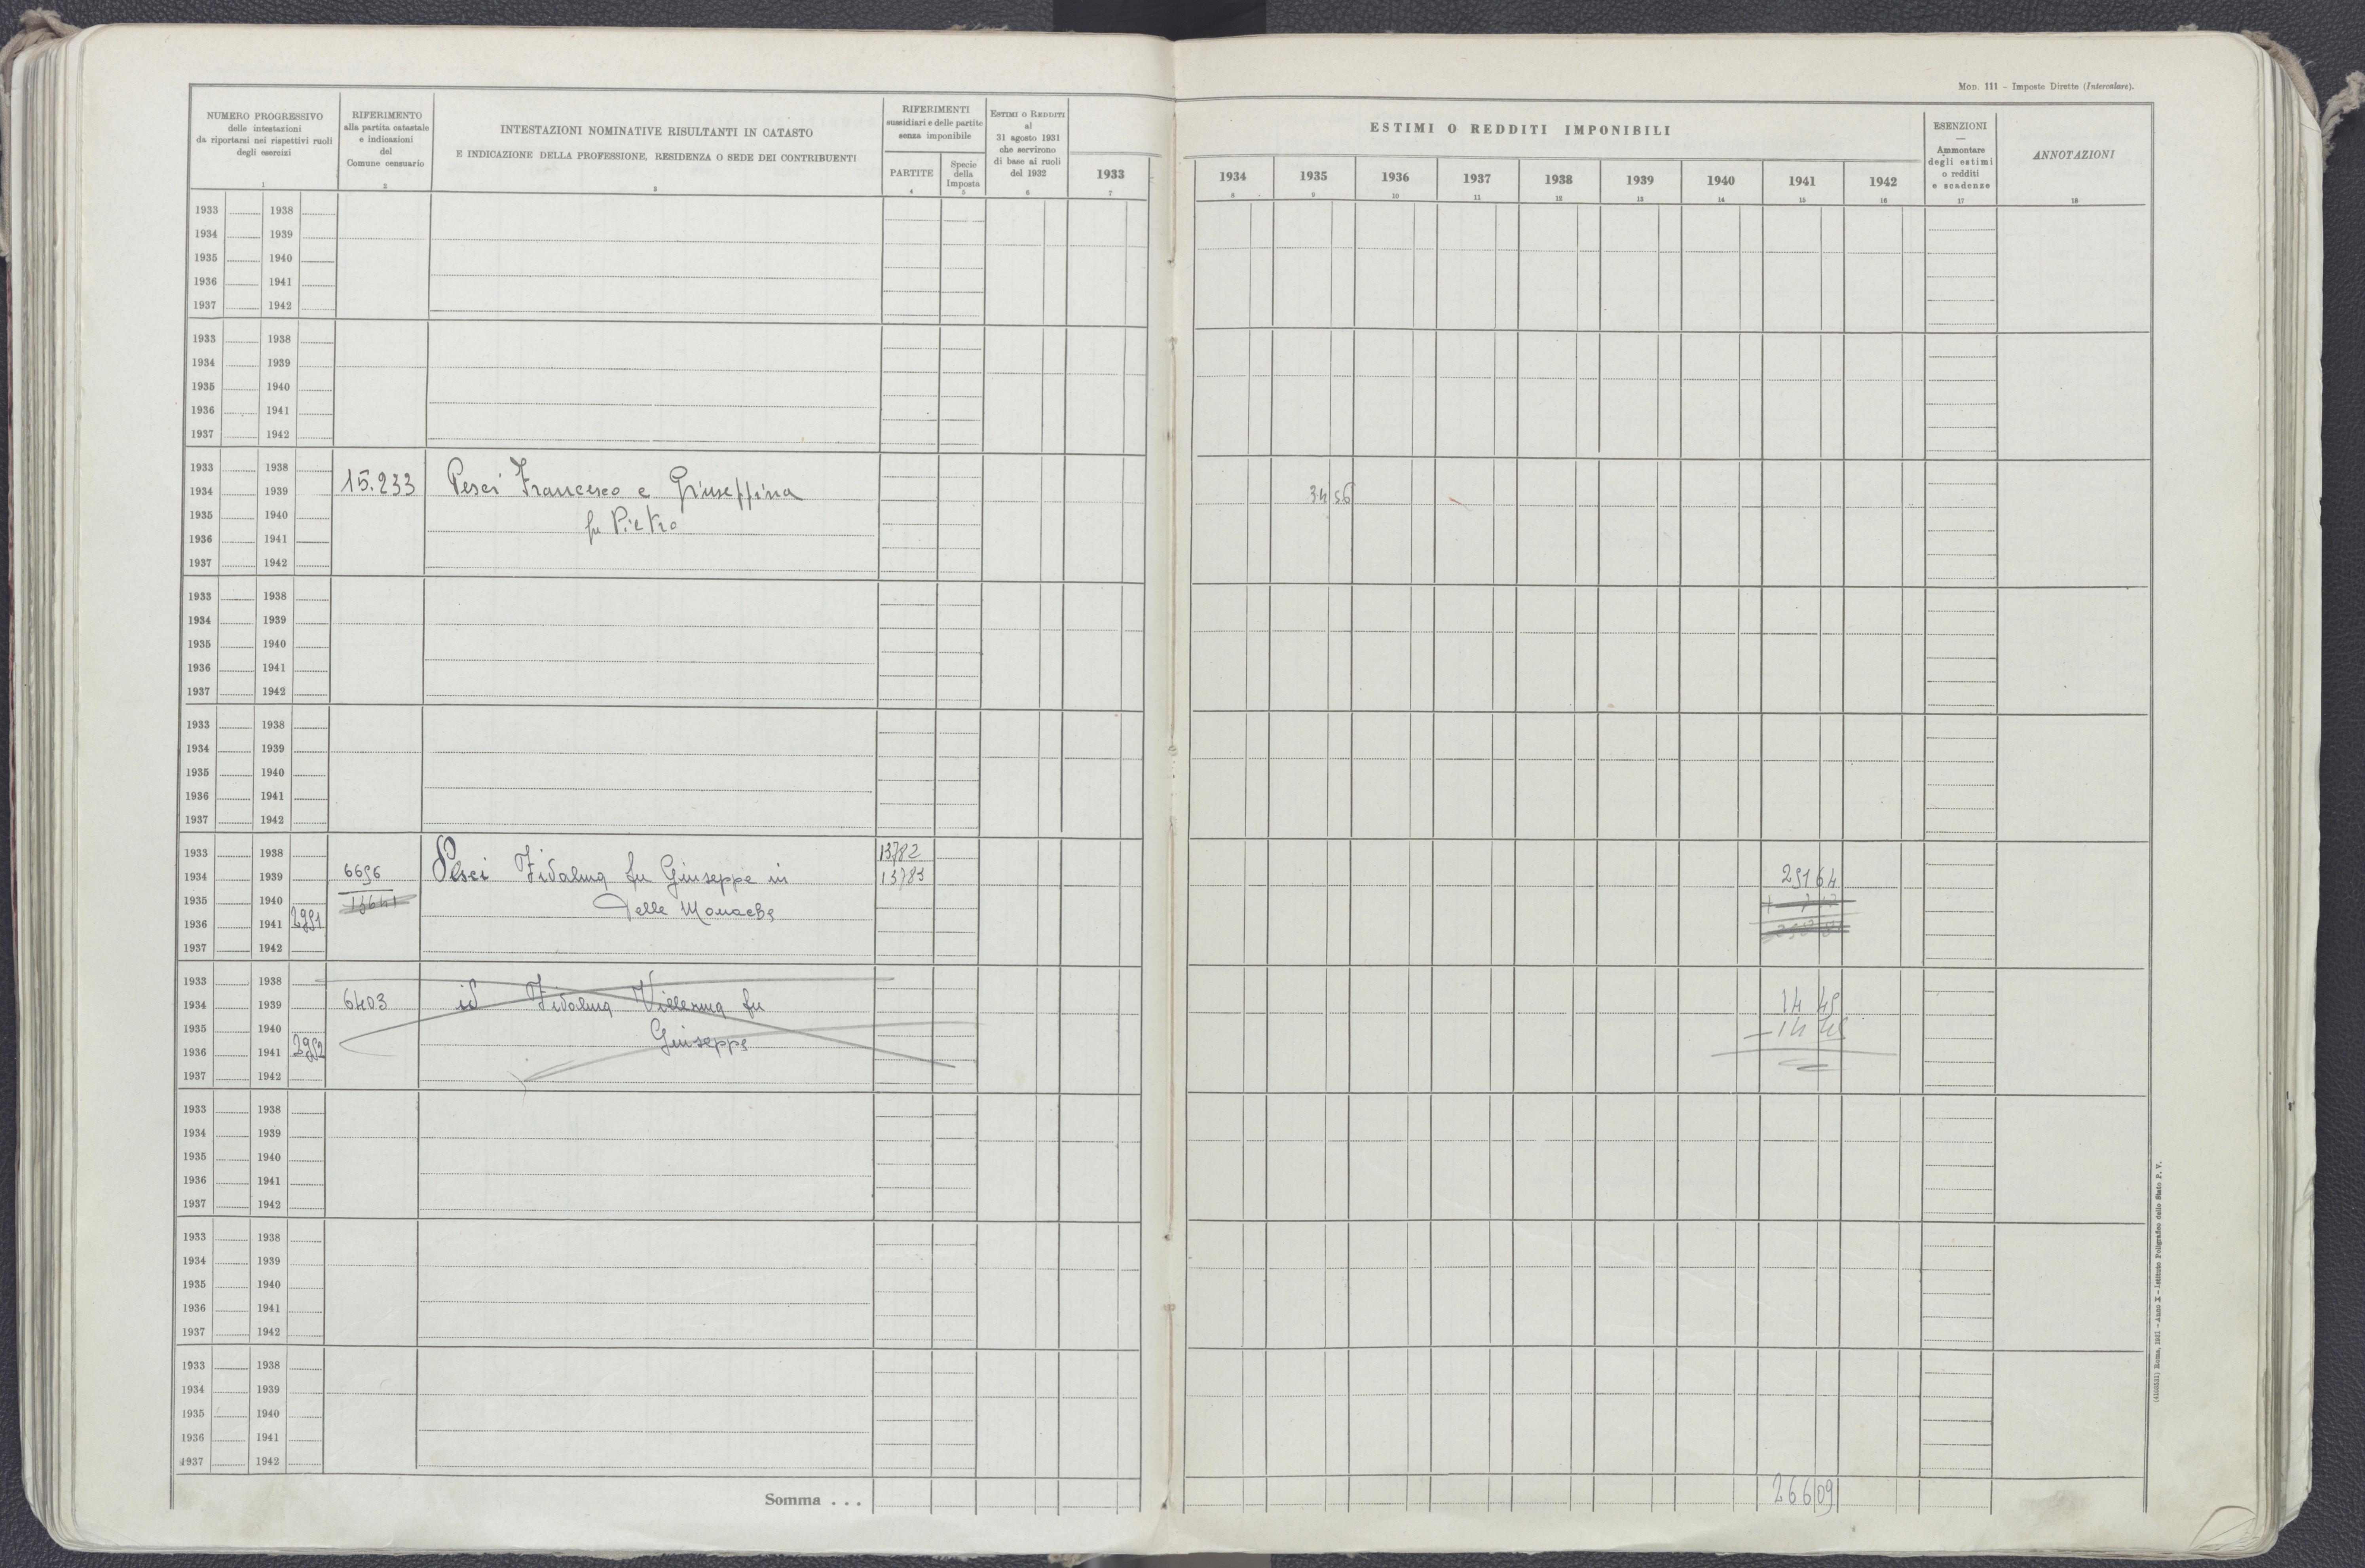 MOD. 111 - Imposte Dirette (Intercalare).
NUMERO PROGRESSIVO
delle intestazioni
da riportarsi nei rispettivi ruoli
degli esercizi
1
RIFERIMENTO
alla partita catastale
e indicazioni
del
Comune censuario
2
INTESTAZIONI NOMINATIVE RISULTANTI IN CATASTO
E INDICAZIONE DELLA PROFESSIONE, RESIDENZA O SEDE DEI CONTRIBUENTI
3
RIFERIMENTI
sussidiari e delle partite
senza imponibile
PARTITE
4
Specie
della
Imposta
5
ESTIMI O REDDITI
al
31 agosto 1931
che servirono
di base ai ruoli
del 1932
6
1933
7
ESTIMI O REDDITI IMPONIBILI
1934 1935 1936 1937 1938 1939 1940 1941 1942
8 9 10 11 12 13 14 15 16
ESENZIONI
—
Ammontare
degli estimi
o redditi
e scadenze
17
ANNOTAZIONI
18
1933 1938
1934 1939
1935 1940
1936 1941
1937 1942
1933 1938
1934 1939
1935 1940
1936 1941
1937 1942
1933 1938
1934 1939 15.233 Pesci Francesco e Giuseppina 34 56
1935 1940 fu Pietro
1936 1941
1937 1942
1933 1938
1934 1939
1935 1940
1936 1941
1937 1942
1933 1938
1934 1939
1935 1940
1936 1941
1937 1942
1933 1938 13782
1934 1939 6696 Pesci Fidalma fu Giuseppe in 13783 251 64
1935 1940 13641 Delle Monache
1936 1941 2991
1937 1942
1933 1938
1934 1939 6403 id Fidalma Villelma fu 14 45
1935 1940 Giuseppe - 14 45
1936 1941 2992
1937 1942
1933 1938
1934 1939
1935 1940
1936 1941
1937 1942
1933 1938
1934 1939
1935 1940
1936 1941
1937 1942
1933 1938
1934 1939
1935 1940
1936 1941
1937 1942
Somma . . . 266 09
(4103531) Roma, 1931 - Anno X - Istituto Poligrafico dello Stato P. V.